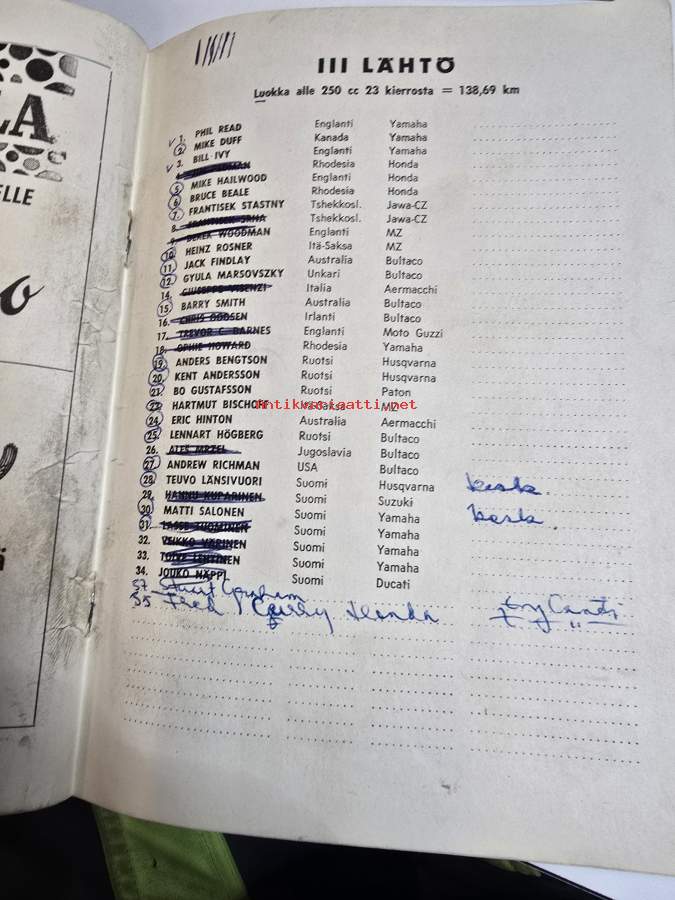 LA
ELLE
III LÄHTÖ
Luokka alle 250 cc 23 kierrosta = 138,69 km
1. PHIL READ Englanti Yamaha
2. MIKE DUFF Kanada Yamaha
3. BILL IVY Englanti Yamaha
4. Rhodesia Honda
5. MIKE HAILWOOD Englanti Honda
6. BRUCE BEALE Rhodesia Honda
7. FRANTISEK STASTNY Tshekkosl. Jawa-CZ
8. FRANTISEK SRNA Tshekkosl. Jawa-CZ
9. DEREK WOODMAN Englanti MZ
10. HEINZ ROSNER Itä-Saksa MZ
11. JACK FINDLAY Australia Bultaco
12. GYULA MARSOVSZKY Unkari Bultaco
14. GIUSEPPE VISENZI Italia Aermacchi
15. BARRY SMITH Australia Bultaco
16. CHRIS GOOSEN Irlanti Bultaco
17. TREVOR C. BARNES Englanti Moto Guzzi
18. OPHIE HOWARD Rhodesia Yamaha
19. ANDERS BENGTSON Ruotsi Husqvarna
20. KENT ANDERSSON Ruotsi Husqvarna
21. BO GUSTAFSSON Ruotsi Paton
23. HARTMUT BISCHOFF Itä-Saksa MZ
24. ERIC HINTON Australia Aermacchi
25. LENNART HÖGBERG Ruotsi Bultaco
26. ALES MRZEL Jugoslavia Bultaco
27. ANDREW RICHMAN USA Bultaco
28. TEUVO LÄNSIVUORI Suomi Husqvarna kesk.
29. HANNU KUPARINEN Suomi Suzuki
30. MATTI SALONEN Suomi Yamaha kesk.
31. LASSE TUOMINEN Suomi Yamaha
32. VEIKKO VARINEN Suomi Yamaha
33. LEHTINEN Suomi Yamaha
34. JOUKO NÄPPI Suomi Ducati
37 Stuart Graham
35 Fred Curry Honda
antikvariaatti.net